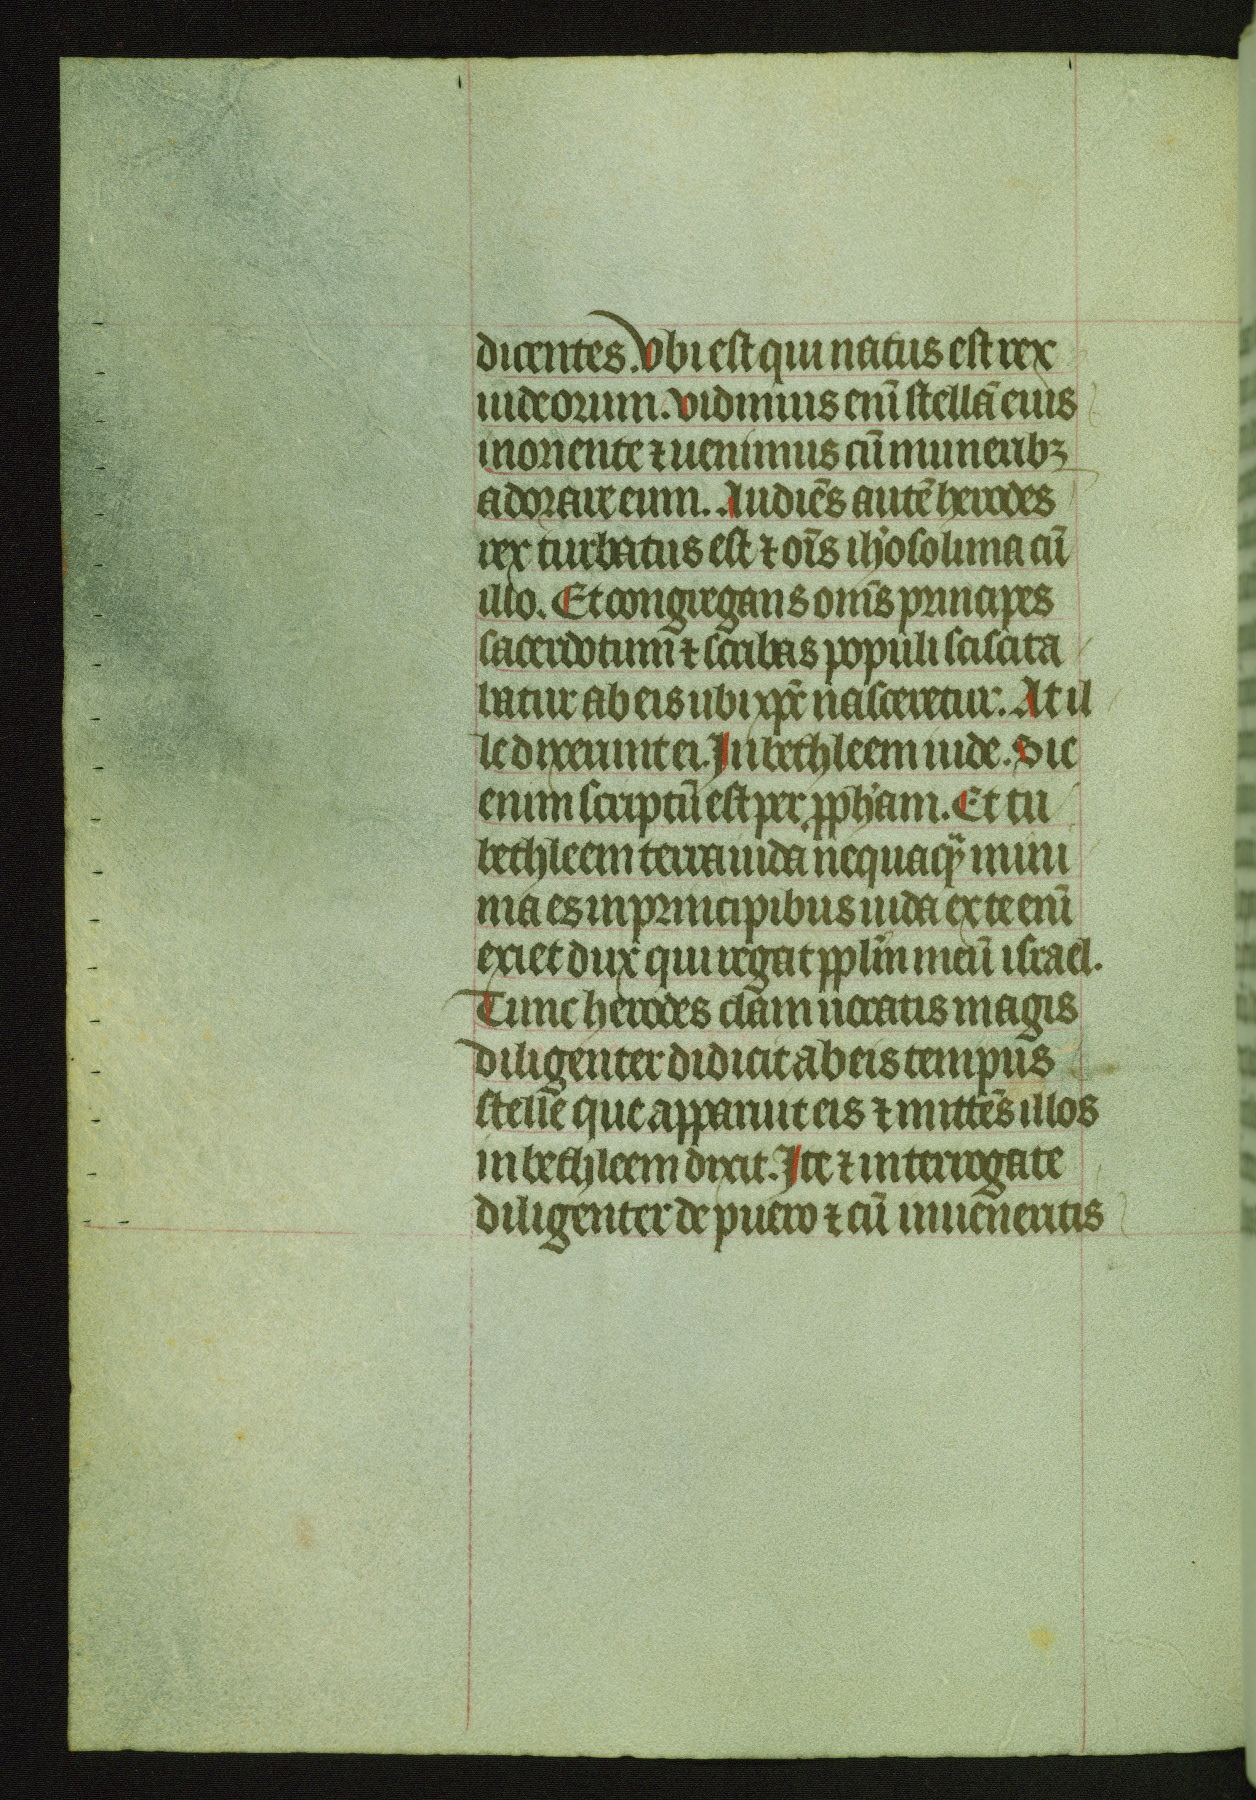 dicentes. Vbi est qui natus est rex
iudeorum. Vidimus enī stellā eius
in oriente ⁊ uenimus cū munerib⁊
adorare eum. Audiēs autē herodes
rex turbatus est ⁊ oīs ih̓osolima cū
illo. Et congregans om̄s principes
sacerdotum ⁊ scribas populi sciscita
batur ab eis ubi xp̄c nasceretur. At il
le dixerunt ei. In bethleem iude. Sic
enim scriptū est per pph̓am. Et tu
bethleem terra iuda nequaq̄ȝ mini
ma es in principibus iuda ex te enī
exiet dux qui regat pplm̄ meū israel.
Tunc herodes clam uocatis magis
diligenter didicit ab eis tempus
stelle que apparuit eis ⁊ mittēs illos
in bethleem dixit. Ite ⁊ interrogate
diligenter de puero ⁊ cū inueneritis